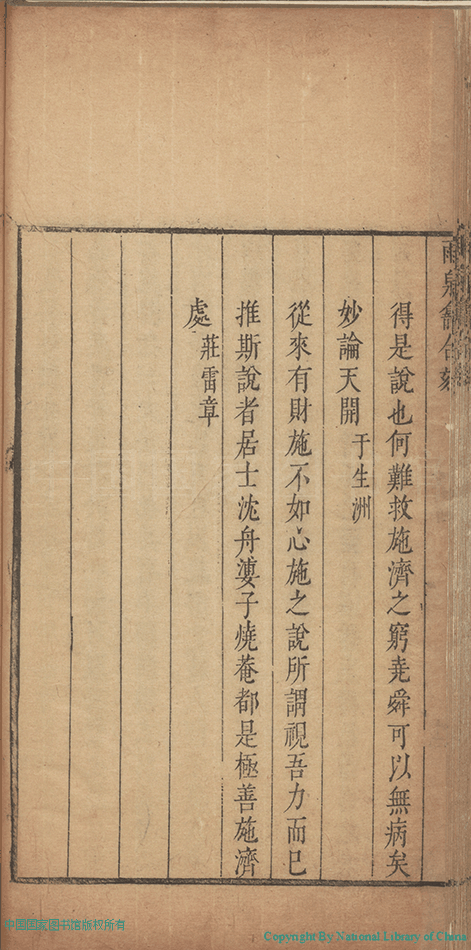 得是說也何難救施濟之窮堯舜可以無病矣
妙論天開 于生洲
從來有財施不如心施之說所謂視吾力而已
推斯說者居士沈舟婆子燒菴都是極善施濟
處 莊雷章
中国国家图书馆版权所有
Copyright By National Library of China